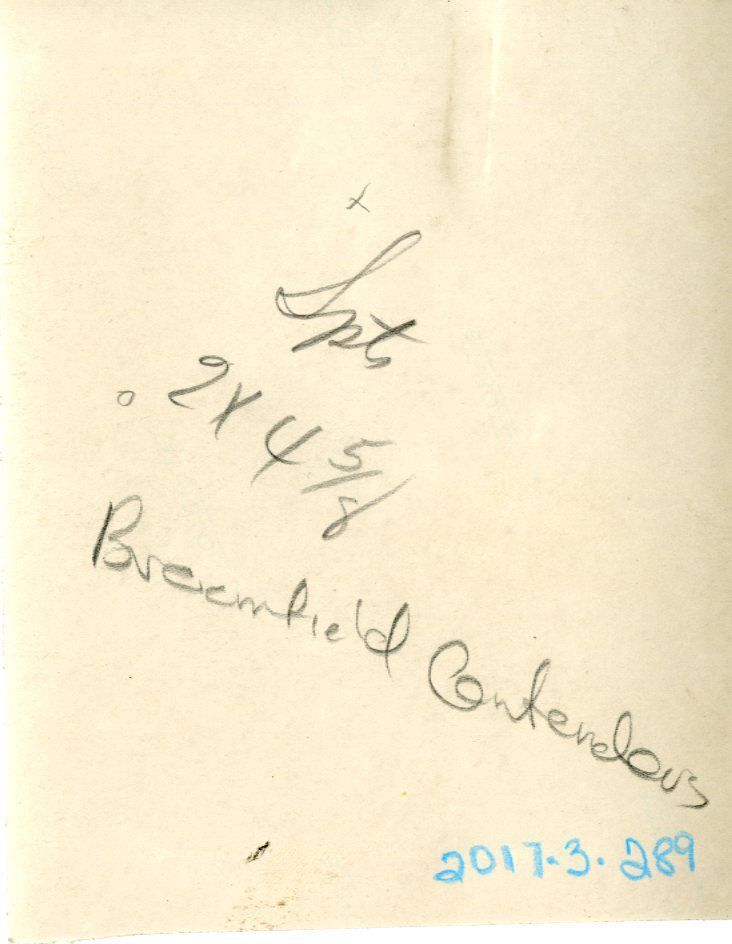 x
Spts
o 2x4 5/8
Broomfield Contenders
2017.3.289